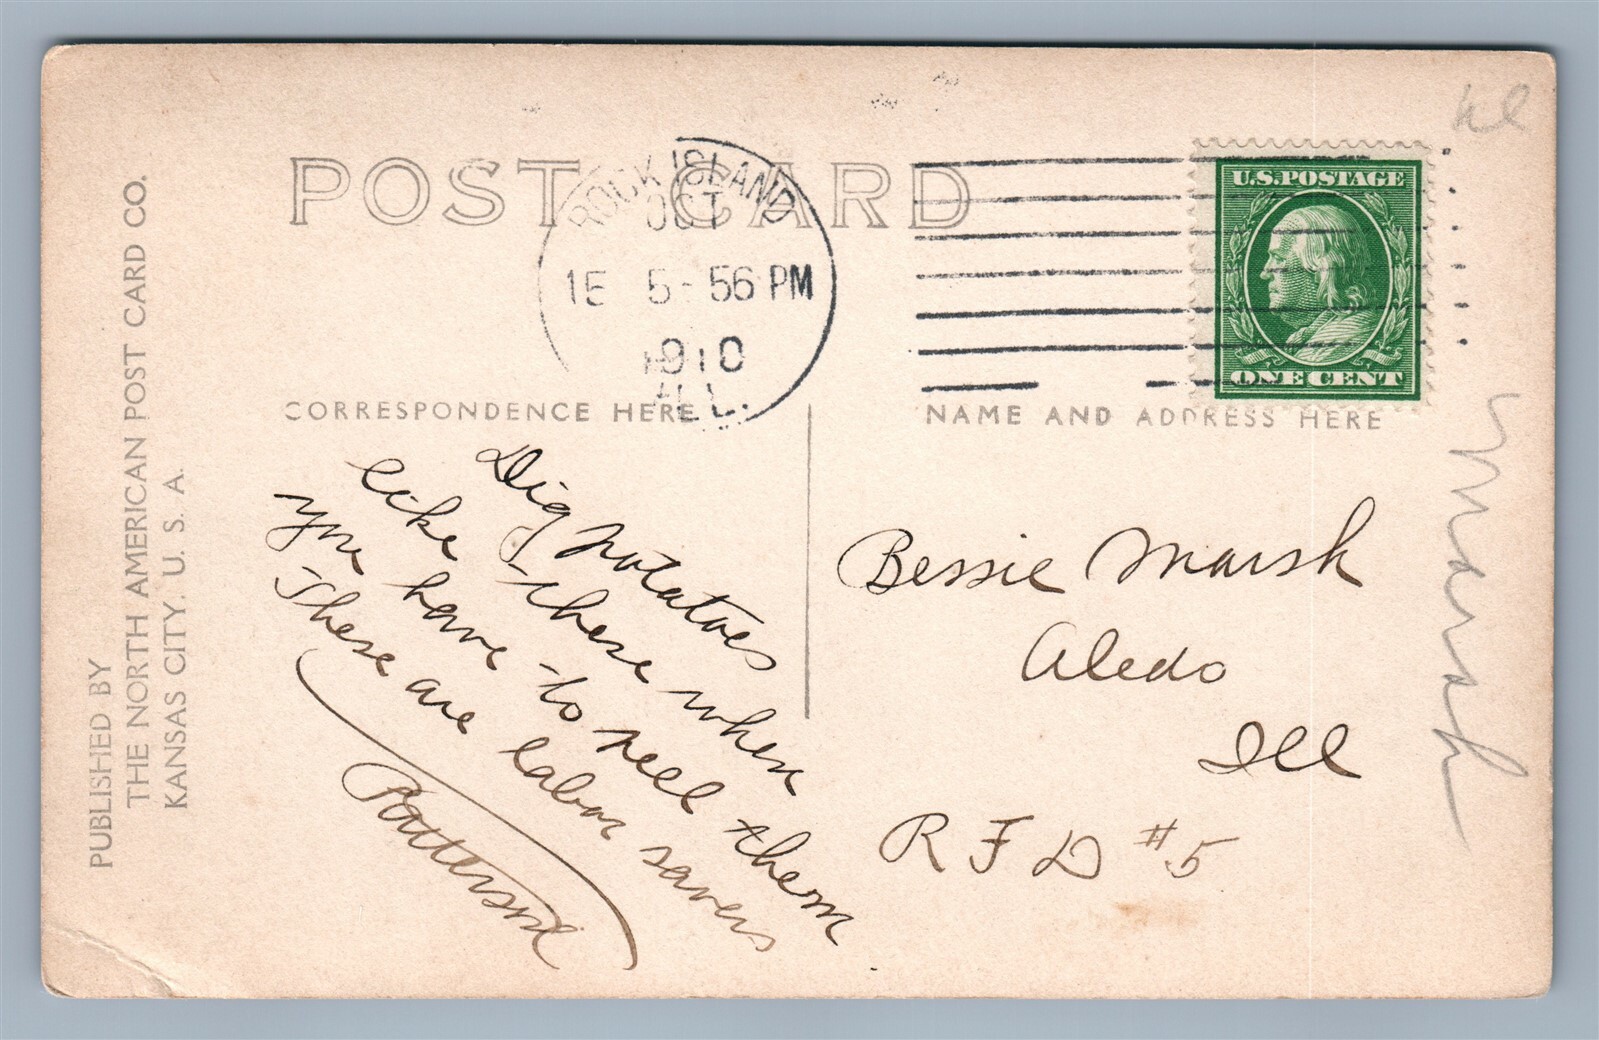 POST CARD
ROCK ISLAND
OCT
15 5-56 PM
1910
ILL.
U.S. POSTAGE
ONE CENT
CORRESPONDENCE HERE
NAME AND ADDRESS HERE
Dig potatoes
like these when
you have to peel them
These are labor savers
Patterson
Bessie Marsh
Aledo
Ill
R F D #5
Marsh
PUBLISHED BY
THE NORTH AMERICAN POST CARD CO.
KANSAS CITY. U. S. A.